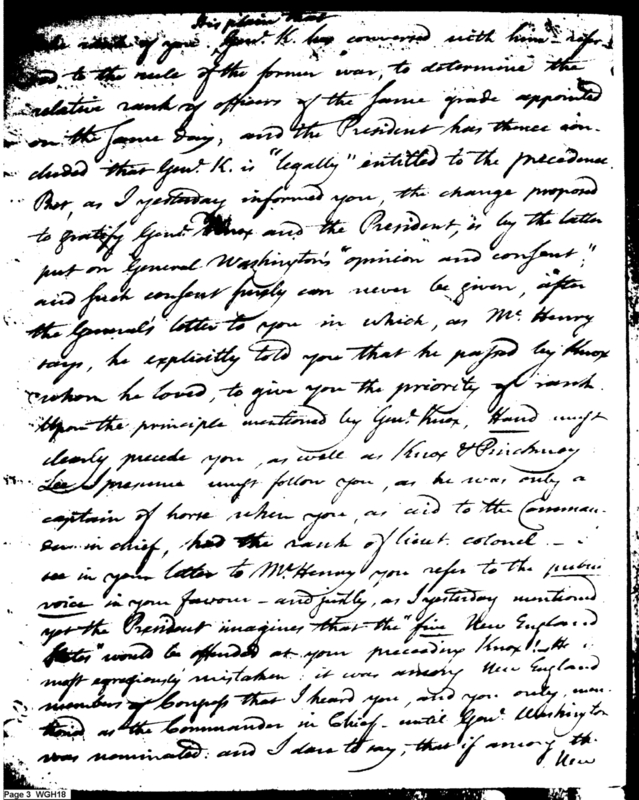 It is plain that
the rank of you. Genl. K. has conversed with him – refer-
ed to the rule of the former war, to determine the
relative rank of officers of the same grade appointed
on the same day; and the President has thence con-
cluded that Genl. K. is "legally" entitled to the precedence.
But, as I yesterday informed you, the change proposed
to gratify Genl. Knox and the President, is by the latter
put on General Washington's "opinion and consent;"
and such consent surely can never be given, after
the General's letter to you in which, as Mr. Henry
says, he explicitly told you that he passed by Knox
whom he loved, to give you the priority of rank.
Upon the principle mentioned by Genl. Knox, Hand must
clearly precede you, as well as Knox & Pinckney
Lee I presume must follow you, as he was only a
captain of horse when you, as aid to the Comman-
der in chief, had the rank of lieut. colonel –
see in your letter to McHenry you refer to the public
voice in your favour – and justly, as I yesterday mentioned
yet the President imagines that the "five New England
States" would be offended at your preceding Knox! He i
most egregiously mistaken: it was among New England
members of Congress that I heard you, and you only, men-
tioned as the Commander in Chief – until Genl. Washington
was nominated: and I dare to say, that if among the
New
Page 3 WGH18